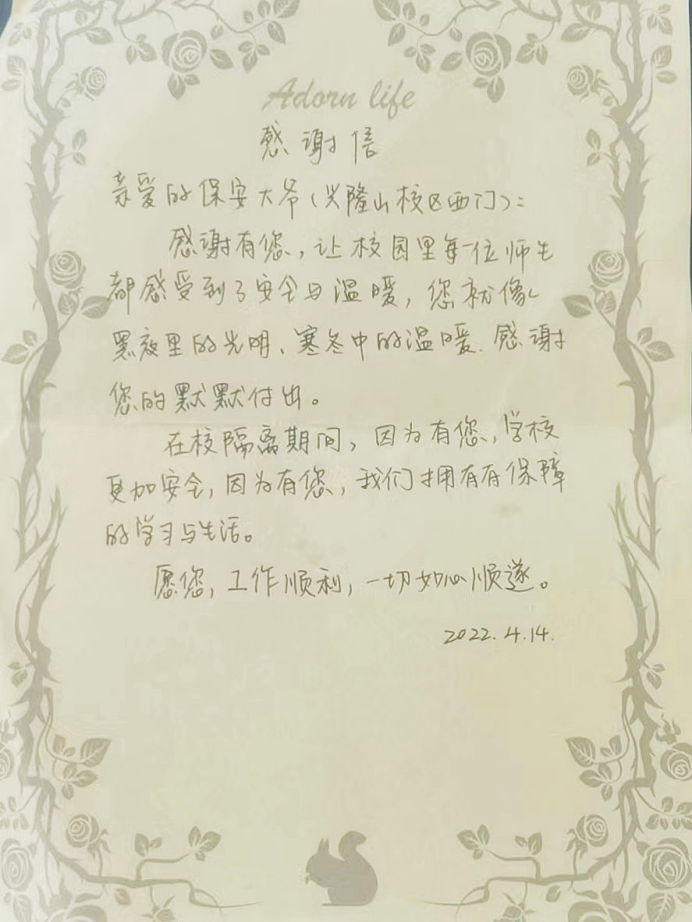 Adorn life
感谢信
亲爱的保安大爷(兴隆山校区西门):
感谢有您,让校园里每一位师生
都感受到了安全与温暖,您就像
黑夜里的光明、寒冬中的温暖.感谢
您的默默付出。
在校隔离期间,因为有您,学校
更加安全,因为有您,我们拥有有保障
的学习与生活。
愿您,工作顺利,一切如心顺遂。
2022.4.14.